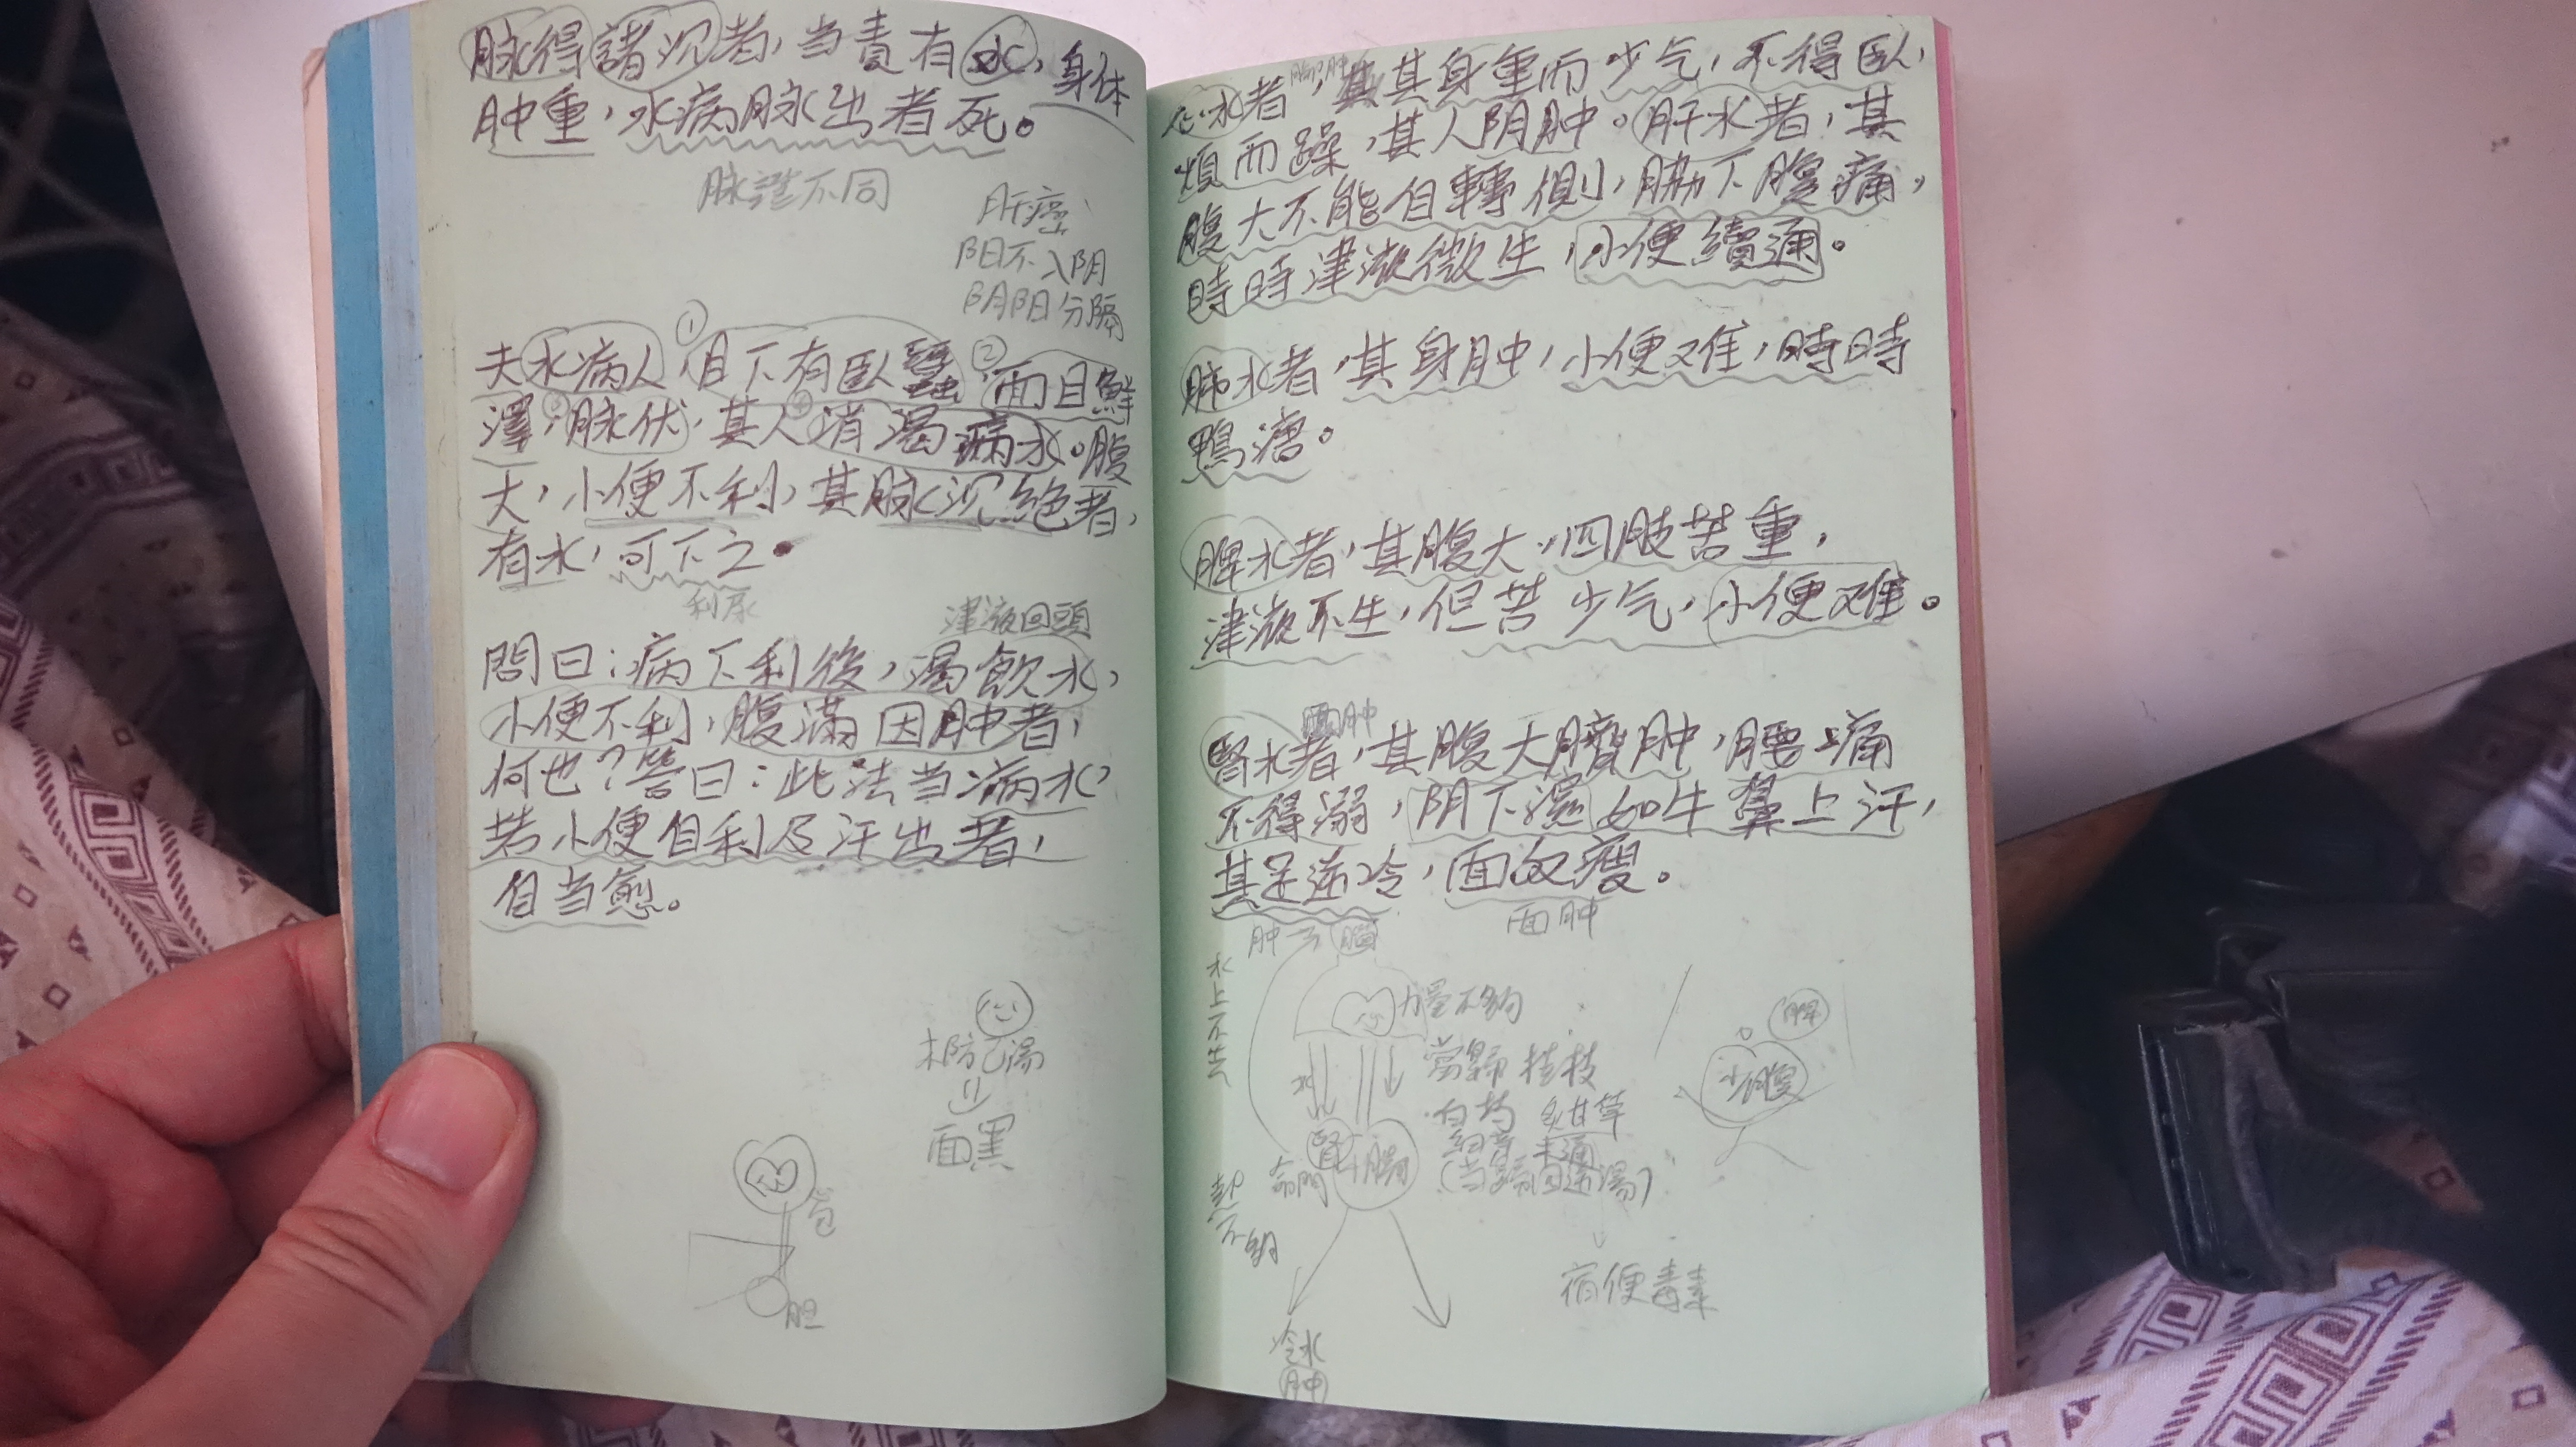 脉得諸沉者，当責有水，身体
肿重，水病脉出者死。
脉証不同
肝癌
阳不入阴
阴阳分隔
①
②
夫水病人，目下有臥蠶，面目鮮
③
④
澤，脉伏，其人消渴病水。腹
大，小便不利，其脉沉絶者，
有水，可下之。
利尿
津液回頭
問曰：病下利後，渴飲水，
小便不利，腹滿因肿者，
何也？答曰：此法当病水，
若小便自利及汗出者，
自当愈。
木防己湯
面黑
包
胆
心水者，其其身重而少气，不得臥，
煩而躁，其人阴肿。肝水者，其
腹大不能自轉側，脇下腹痛，
時時津液微生，小便續通。
肺水者，其身肿，小便难，時時
鴨溏。
脾水者，其腹大，四肢苦重，
津液不生，但苦少气，小便难。
腎水者，其腹大臍肿，腰痛
不得溺，阴下濕如牛鼻上汗，
其足逆冷，面反瘦。
面肿
力量不夠
當歸 桂枝
白芍 炙甘草
細辛 木通
(当歸四逆湯)
宿便毒素
脾
少腹
水
腎
小腸
命門
熱不夠
冷水
肿